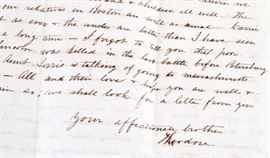 and & children all well. The
our relatives in Boston are well as usual. Carrie
as ever & the uncles are better than I have seen
a long time — I forgot to tell you that poor
was killed in the last battle before Petersburg
Aunt Lizzie is talking of going to massachusetts
— All send their love & hope you are well &
so, we shall look for a letter from you
Your affectionate brother
Theodore